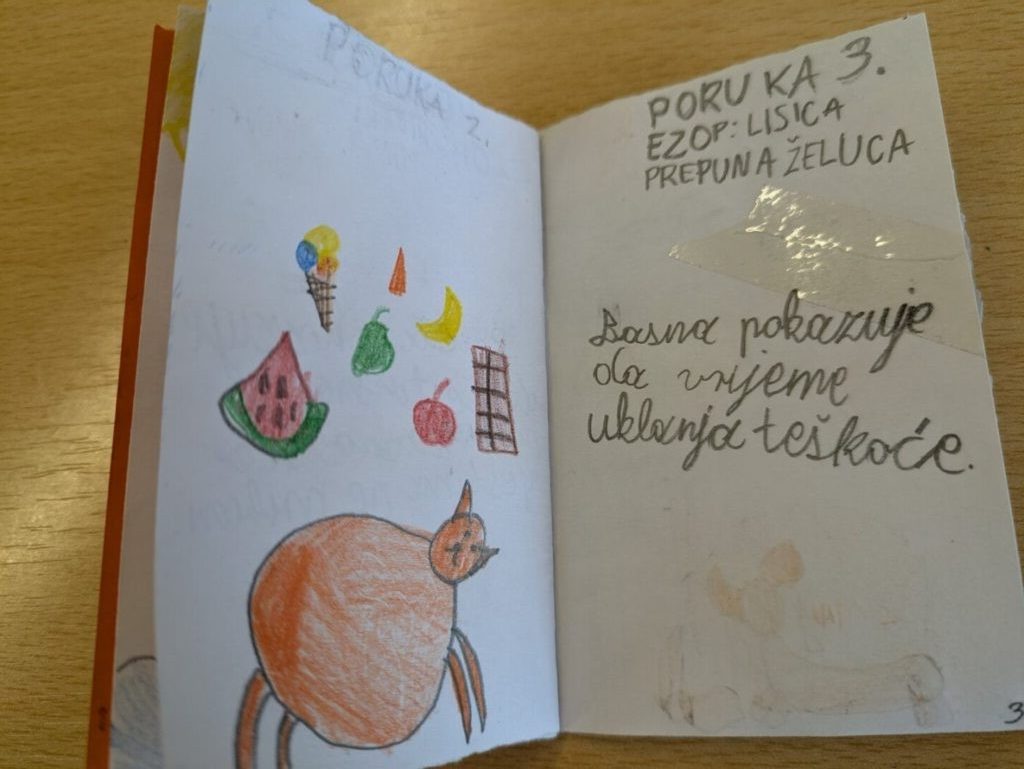 PORUKA 2.
PORUKA 3.
EZOP: LISICA
PREPUNA ŽELUCA
Basna pokazuje
da vrijeme
uklanja teškoće.
3